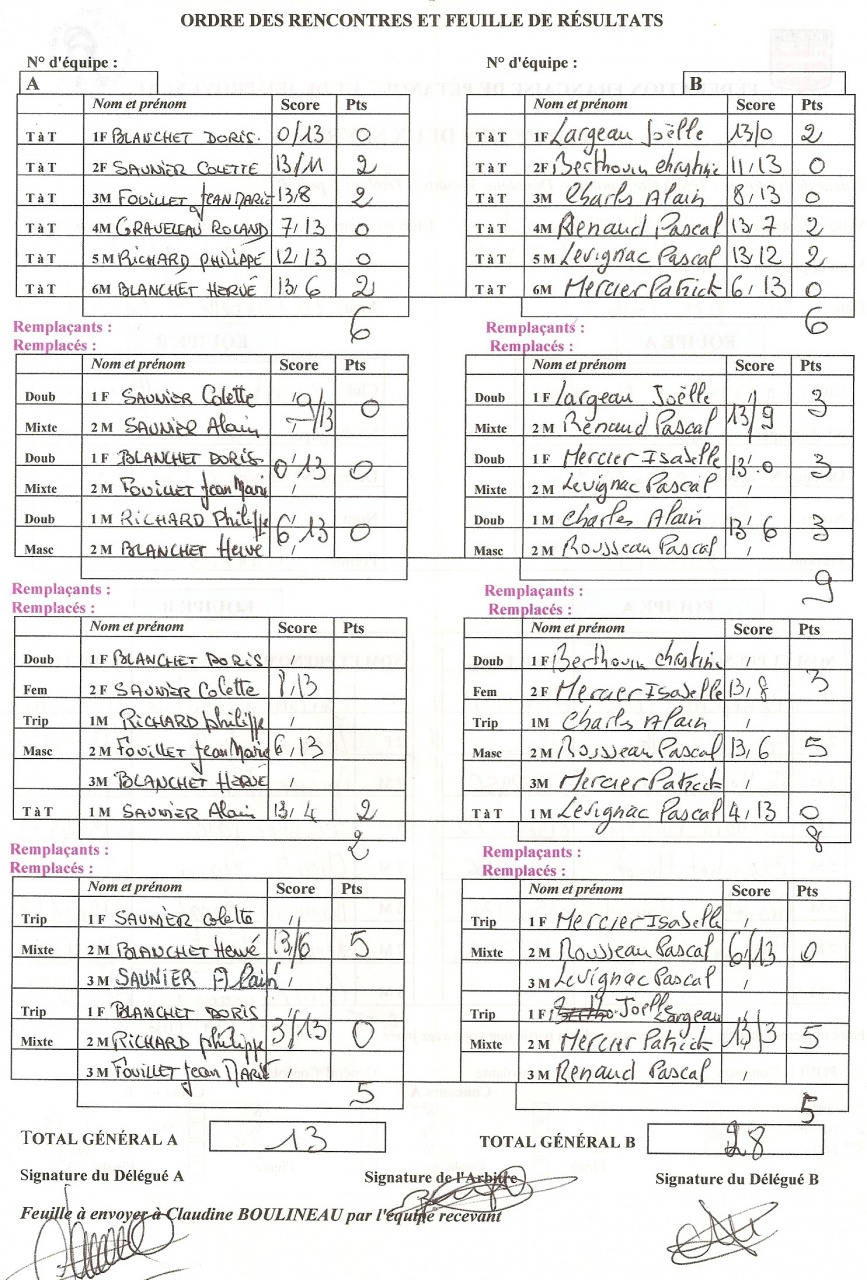 ORDRE DES RENCONTRES ET FEUILLE DE RÉSULTATS
N° d'équipe : N° d'équipe :
A B
Nom et prénom Score Pts Nom et prénom Score Pts
T à T 1F BLANCHET DORIS. 0/13 0 T à T 1F Largeau Joëlle 13/0 2
T à T 2F SAUNIER COLETTE 13/11 2 T à T 2F Berthouin christine 11/13 0
T à T 3M FOUILLET JEAN MARIE 13/8 2 T à T 3M Charles Alain 8/13 0
T à T 4M GRAVELEAU ROLAND 7/13 0 T à T 4M Renaud Pascal 13/7 2
T à T 5M RICHARD PHILIPPE 12/13 0 T à T 5M Levignac Pascal 13/12 2
T à T 6M BLANCHET HERVÉ 13/6 2 T à T 6M Mercier Patrick 6/13 0
6 6
Remplaçants : Remplaçants :
Remplacés : Remplacés :
Nom et prénom Score Pts Nom et prénom Score Pts
Doub 1 F SAUNIER Colette 9/13 0 Doub 1 F Largeau Joëlle 13/9 3
Mixte 2 M SAUNIER Alain Mixte 2 M Renaud Pascal
Doub 1 F BLANCHET DORIS. 0/13 0 Doub 1 F Mercier Isabelle 13/0 3
Mixte 2 M Fouillet Jean Marie / Mixte 2 M Levignac Pascal /
Doub 1 M RICHARD Philippe 6/13 0 Doub 1 M Charles Alain 13/6 3
Masc 2 M BLANCHET Hervé / Masc 2 M Rousseau Pascal /
9
Remplaçants : Remplaçants :
Remplacés : Remplacés :
Nom et prénom Score Pts Nom et prénom Score Pts
Doub 1 F BLANCHET DORIS / Doub 1 F Berthouin christine /
Fem 2 F SAUNIER Colette 8/13 Fem 2 F Mercier Isabelle 13/8 3
Trip 1M RICHARD philippe / Trip 1M Charles Alain /
Masc 2 M Fouillet Jean Marie 6/13 Masc 2 M Rousseau Pascal 13/6 5
3M BLANCHET HERVÉ / 3M Mercier Patrick /
T à T 1 M SAUNIER Alain 13/4 2 T à T 1 M Levignac Pascal 4/13 0
2 8
Remplaçants : Remplaçants :
Remplacés : Remplacés :
Nom et prénom Score Pts Nom et prénom Score Pts
Trip 1 F SAUNIER Colette / Trip 1 F Mercier Isabelle /
Mixte 2 M BLANCHET Hervé 13/6 5 Mixte 2 M Rousseau Pascal 6/13 0
3 M SAUNIER Alain / 3 M Levignac Pascal /
Trip 1 F BLANCHET DORIS / Trip 1 F Joëlle Largeau
Mixte 2 M RICHARD philippe 3/13 0 Mixte 2 M Mercier Patrick 13/3 5
3 M Fouillet Jean MARIE 3 M Renaud Pascal
5 5
TOTAL GÉNÉRAL A 13 TOTAL GÉNÉRAL B 28
Signature du Délégué A Signature de l'Arbitre Signature du Délégué B
Feuille à envoyer à Claudine BOULINEAU par l'équipe recevant